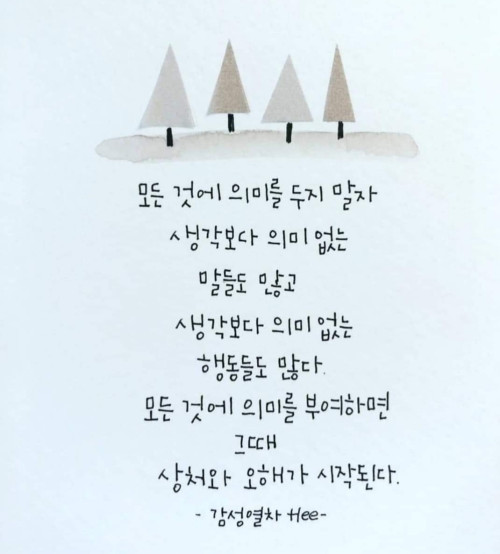 모든 것에 의미를 두지 말자
생각보다 의미 없는
말들도 많고
생각보다 의미 없는
행동들도 많다.
모든 것에 의미를 부여하면
그때
상처와 오해가 시작된다.
- 감성열차 Hee-